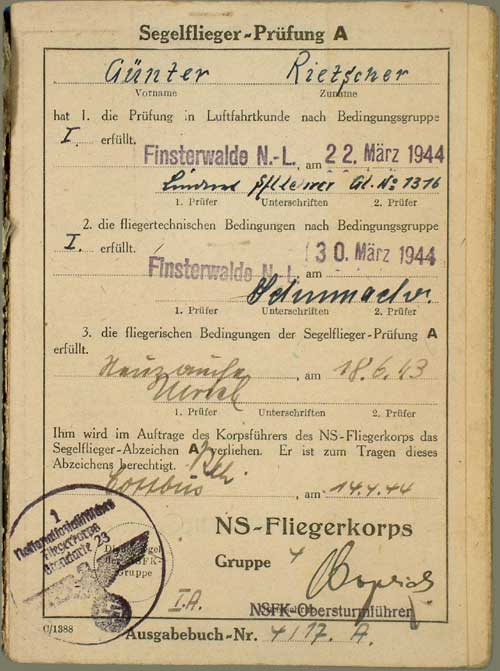 Segelflieger-Prüfung A
Günter Rietscher
Vorname Zuname
hat 1. die Prüfung in Luftfahrtkunde nach Bedingungsgruppe
I. erfüllt.
Finsterwalde N.-L., am 22. März 1944
Gl. No 1316
1. Prüfer Unterschriften 2. Prüfer
2. die fliegertechnischen Bedingungen nach Bedingungsgruppe
I. erfüllt.
Finsterwalde N.-L., am 30. März 1944
Schumacher
1. Prüfer Unterschriften 2. Prüfer
3. die fliegerischen Bedingungen der Segelflieger-Prüfung A
erfüllt.
Neuzauche, am 18.6.43
1. Prüfer Unterschriften 2. Prüfer
Ihm wird im Auftrage des Korpsführers des NS-Fliegerkorps das
Segelflieger-Abzeichen A verliehen. Er ist zum Tragen dieses
Abzeichens berechtigt.
Cottbus, am 14.4.44
1
Nationalsozialistisches
Fliegerkorps
Standarte 23
NS-Fliegerkorps
Gruppe 4
Gruppe
I.A.
NSFK-Obersturmführer
C/1388
Ausgabebuch-Nr. 4/17. A.